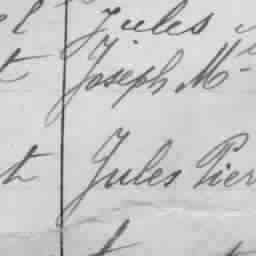 Jules
Joseph M
Jules Pier